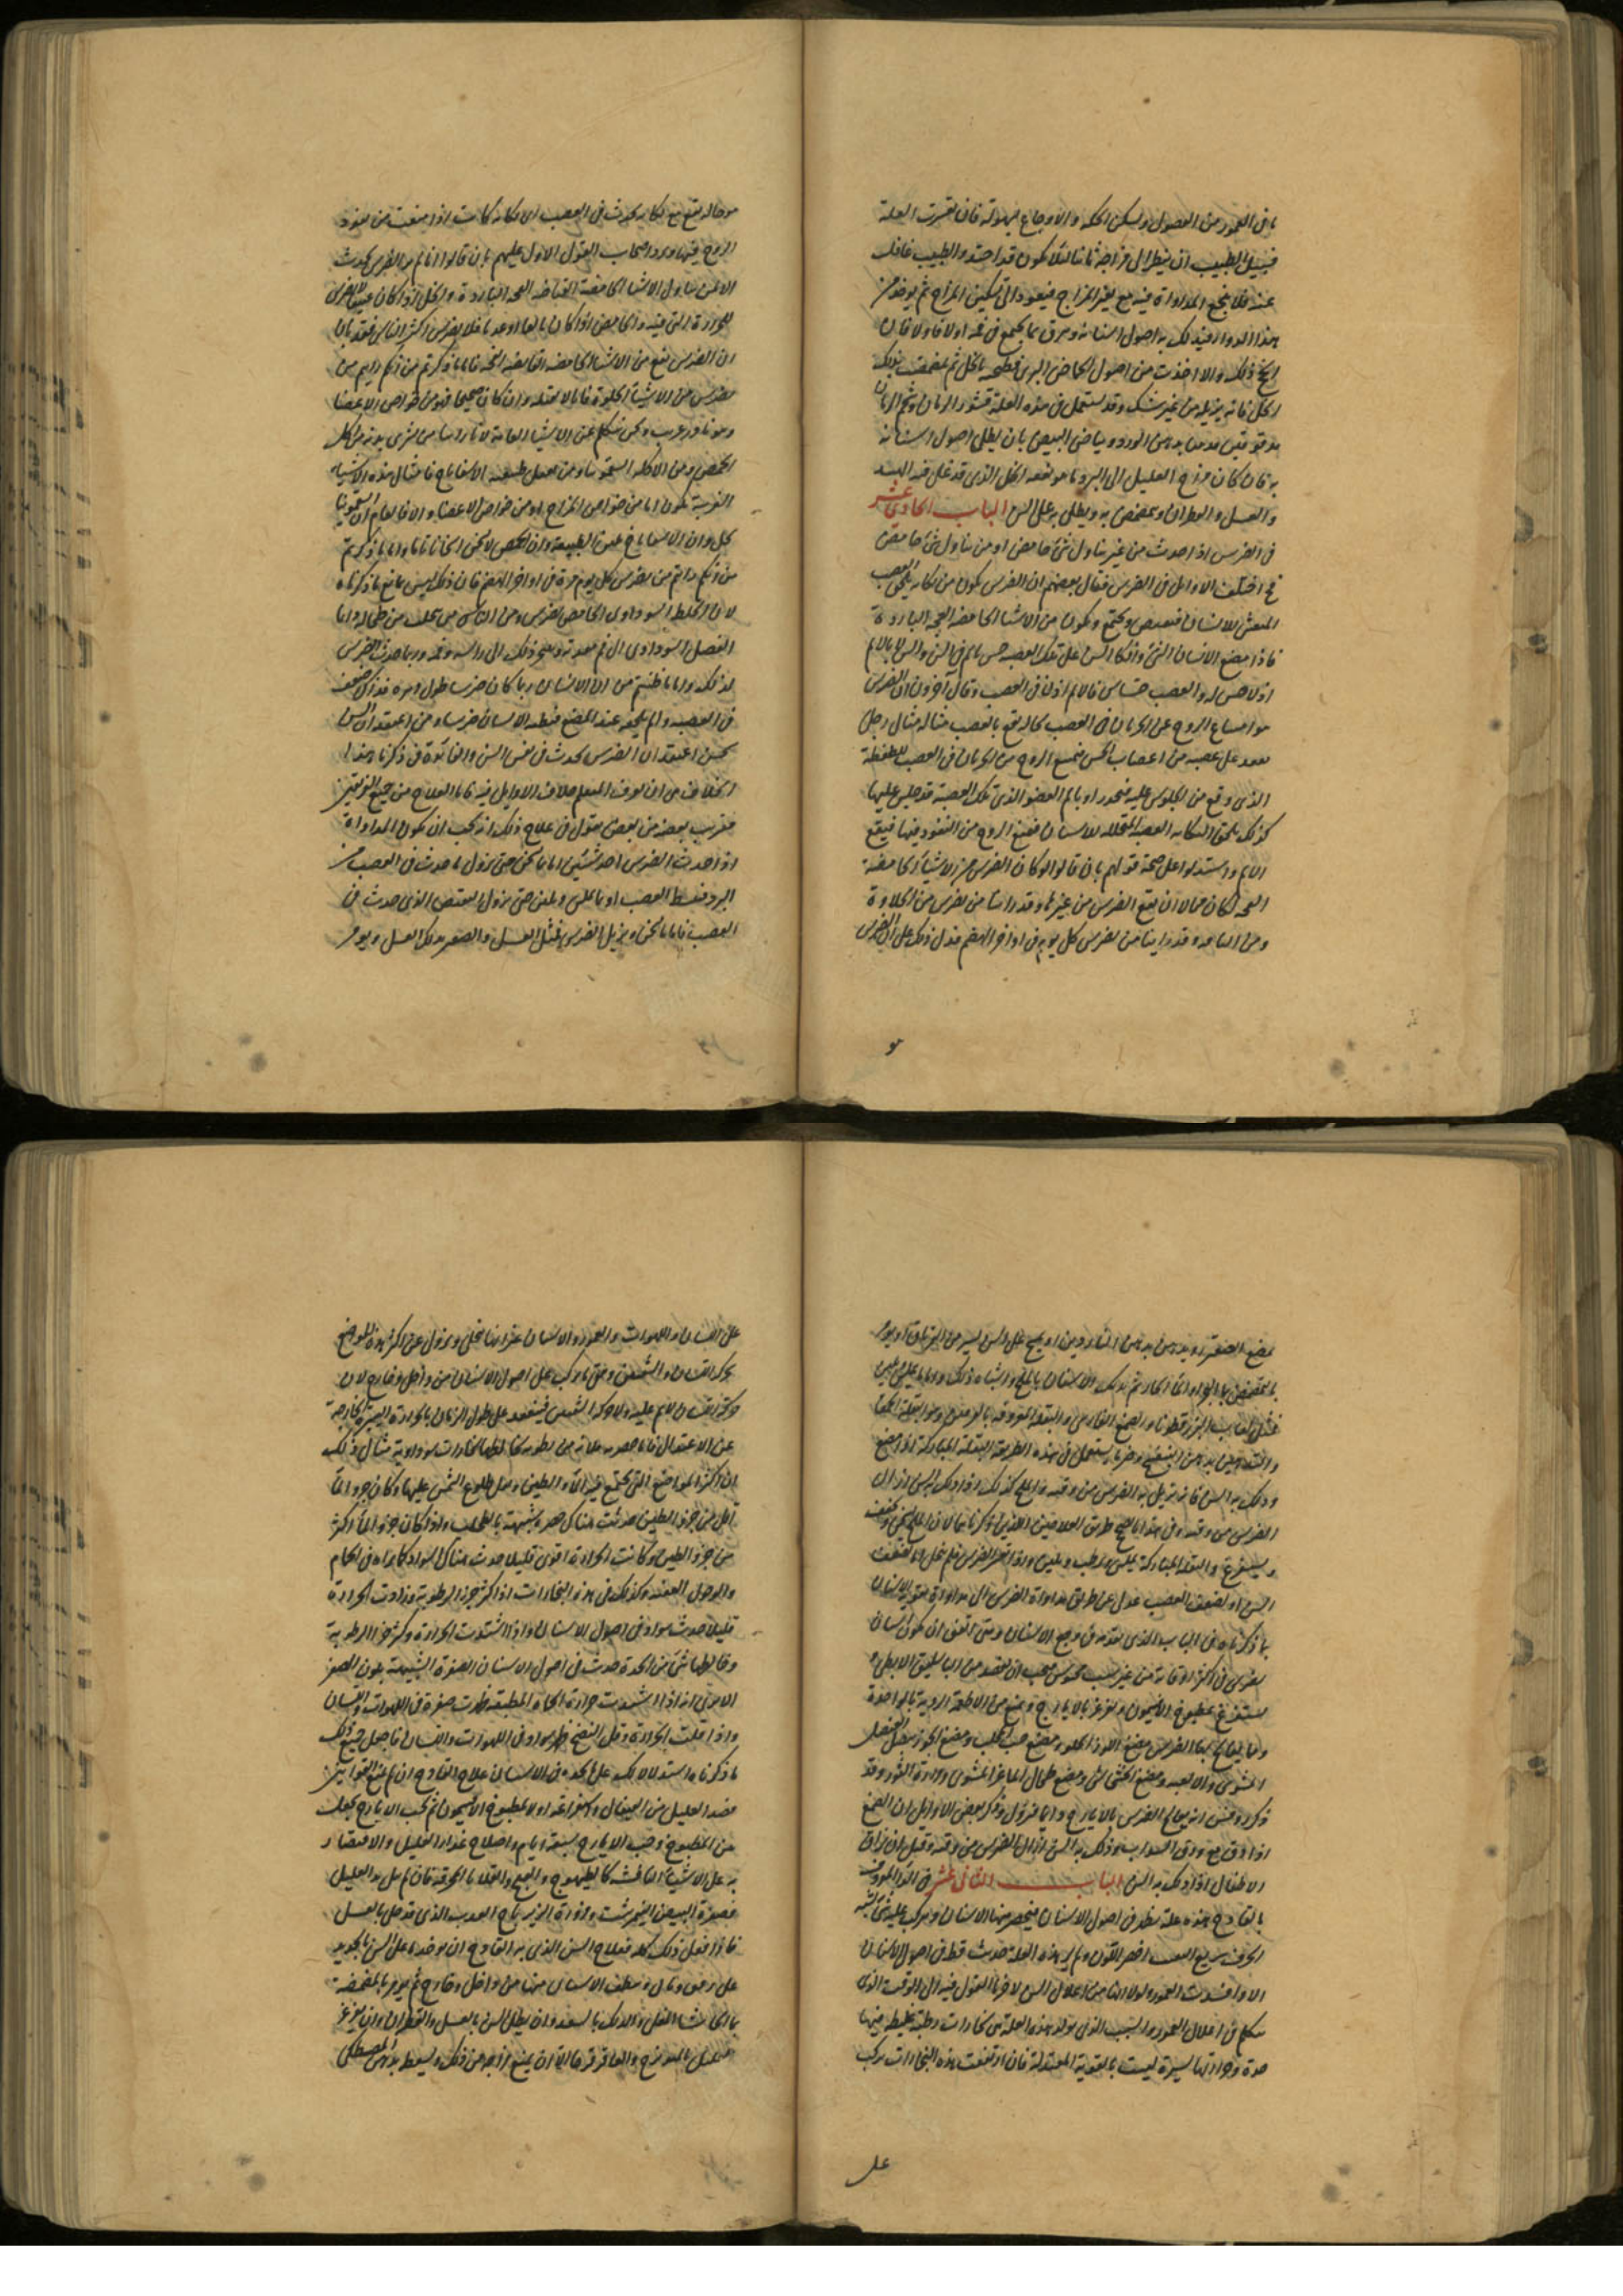 باقي العمور من الفصول ويسكن الحكه والاوجاع بسهولة فان تعسرت العلة
فسبيل الطبيب ان ينظر الى مزاجه ثانيا لئلا يكون قد احتد والطبيب غافل
عنه فلا ينجح المداواة فيه مع تغير المزاج فيعود الى تسكين المزاج ثم يوخذ من
هذا الدواء فيدلك به اصول اسنانه ويبزق ما يجتمع في فمه اولا فاولا فان
انجح ذلك والا اخذت من اصول الحماض البري فطبخه بالخل ثم يمضمض بذلك
الخل فانه يزيله من غير شك وقد يستعمل في هذه العلة قشور الرمان وشحم الرمان
مدقوقين بدهن الورد وبياض البيض بان يطلى اصول اسنانه
به فان كان مزاج العليل الى البرد ما هو نفعه الخل الذي قد غلي فيه
والعسل والقطران ويمضمض به ويطلى به على السن الباب الحادي عشر
في الضرس اذا حدث من غير تناول شيء حامض او من تناول شيء حامض
قد اختلف الاوائل في الضرس فقال بعضهم ان الضرس يكون من نكايه يلحق العصب
المنعش للاسنان فيقبض ويجتمع ويكون من الاشياء الحامضه الفجه الباردة
فاذا مضغ الانسان الشيء واتكا السن على تلك العصبه حس بالم في السن والسن لا يالم
اذ لا حس له والعصب حساس فالالم اذن في العصب وقال آخرون ان الضرس
هو امتناع الروح عن الجريان في العصب لحاله تقع بالعصب مثاله مثال رجل
يقعد على عصبه من اعصاب الحس فيمنع الروح من الجريان في العصب للضغطة
الذي وقع من الجلوس عليه فيخدر او يالم العضو الذي تلك العصبة قد جلس عليها
كذلك يلحق النكايه العصبه المتخلله للاسنان فيمنع الروح من النفوذ فيها فيقع
الالم واستدلوا على صحة قولهم بان قالوا لو كان الضرس من الاشياء الحامضة
الفجه لكان محالا ان يقع الضرس من غيرها وقد راينا من يضرس من الحلاوة
ومن وقد راينا من يضرس كل يوم في اواخر الهضم فدل ذلك على ان الضرس
هو
هو حاله تقع مع نكايه يحدث في العصب اي نكايه كانت اذا منعت من نفوذ
الروح فيها ورد اصحاب القول الاول عليهم بان قالوا انا لم نر الضرس يحدث
الا عن تناول الاشياء الحامضة القابضه الفجه الباردة والخل اذا كان
للحرارة التي فيه والحامض اذا كان بالغا او عذبا فلا يضرس اكثر الناس فقد بان
ان الضرس تقع من الاشياء الحامضه القابضه الفجه فاما ما ذكرتم من انكم رايتم من
يضرس من الاشياء الحلوة فانا لا نقبله وان كان صحيحا فهو من خواص الاعضا
وهو نادر غريب ونحن نتكلم على الاشياء العامة لانا راينا من شري بدنه من اكل
الحمص ومن الاكله السقمونيا ومن يعقل طبيعته الاسفاناخ فامثال هذه الاشياء
الغريبة يكون اما من خواص المزاج او من خواص الاعضاء والا فالعام ان السقمونيا
يحل وان الاسفاناخ يلين الطبيعة وان الحمص لا يخشن اسخانا تاما واما ما ذكرتم
من انكم رايتم من يضرس كل يوم مرة في اواخر الهضم فان ذلك ليس بمانع ما ذكرناه
لان الخلط السوداوي الحامض يضرس ومن الناس من يتحلب من طحاله واما
الفضل السوداوي الى فم معدته ويبخر ذلك الى راسه وفمه وربما حدث الضرس
لذلك واما ما ظننتم من ان الانسان ربما كان ضرسا طول دهره فذلك ضعف
في العصبه والم يلحقه عند المضغ فيظنه الانسان ضرسا ومن اعتقد ان السن
يحس اعتقد ان الضرس يحدث في نفس السن والفائدة في ذكرنا هذا
الخلاف هي ان يعرف المتعلم خلاف الاوايل فيه فاما العلاج من جميع الفريقين
فقريب بعضه من بعض نقول في علاج ذلك انه يجب ان يكون المداواة
اذا حدث الضرس احد شيئين اما ما يسخن حتى يزول ما حدث في العصب من
البرد فينبسط العصب او ما يملس ويلين حتى يزول التقبض الذي حدث في
العصب فاما ما يسخن ويزيل الضرس فمثل العسل والصعتر يدلك بالعسل ويومر
بمضغ الصعتر ويدهن بدهن الناردين او يمسح على السن يسير من الترياق او يومر
بالتمضمض بالماء الحار ثم يدلك الاسنان بالملح واشباه ذلك واما ما يملس ويلين
فمثل لعاب البزرقطونا والصمغ الفارسي والبقله المعروفه بالفرفين وهو البقلة الحمقا
والتدهين بدهن البنفسج وخير ما يستعمل في هذه الطريقه البقلة المباركة اذا مضغ
ودلك به السن فانه يزيل به الضرس من وقته والملح كذلك اذا دلك به السن ازال
الضرس من وقته وفي هذا ما يصحح طريق العلاجين اللذين ذكرناهما لان الملح يسخن ويجفف
ويستفرغ والبقله المباركة يملس ويرطب ويلين واذا تعسر الضرس فلم ينحل اما لضعف
السن او لضعف العصب عدل عن طريق مداواة الضرس الى مداواة تقوية الاسنان
بما ذكرناه في الباب الذي تقدم في وجع الاسنان ومتى اتفق ان يكون انسان
يضرس في اكثر اوقاته من غير سبب محسوس فيجب ان يفصد من الباسليق الابطي
ويستفرغ بمطبوخ الافتيمون ويغرغر بالايارج ويمنع من الاطعمة الرديه بالواحدة
ومما يعالج بها الضرس مضغ اللوز الحلو ومضغ حب المحلب ومضغ الجوز ومضغ البصل
المشوي والالعبه ومضغ الخشخاش ومضغ طحال الماعز المشوي ومرارة الثور وقد
ذكر روفس انه يعالج الضرس بالايارج دائما فيزول وذكر بعض الاوايل ان الصمغ
اذا دق مع ورق السداب ودلك به السن ازال الضرس من وقته وقيل ان بزاق
الاطفال اذا دلك به السن الباب الثاني عشر في الداء المعروف
بالقادح هذه علة تظهر في اصول الاسنان فيخضر منها الاسنان ويركب عليه شيء شبه
الخزف سريع اخضر اللون ولم ير هذه العلة حدثت قط في اصول الاسنان
الا وافسدت العمور ولولا انها من اعلال السن لاخرنا القول فيه الى الوقت الذي
نتكلم في اعلال العمور والسبب الذي يولد هذه العلة هي بخارات رطبة غليظه فيها
حدة وحرارتها يسيرة ليست بالقوية المعتدلة فان ارتفعت هذه البخارات يركب
على
على اللسان واللهوات والعمور والاسنان غير انها تنحل ويزول عن اكثر هذه المواضع
بحركة اللسان والشفتين وبقي ما يركب على اصول الاسنان من داخل وخارج لان
حركة اللسان لا يمر عليه ولا حركة الشفتين فينعقد على طول الزمان بالحرارة اليسيرة الخارجة
عن الاعتدال فاما خضرته فلانه من رطوبه يخالطها بخارات سوداوية مثال ذلك
ان اكثر المواضع التي يجتمع فيه الماء والطين وبعد طلوع الشمس عليها وكان جزو الماء
اقل من جزو الطين حدثت هناك خضره شبيهة بالطحلب واذا كان جزو الماء اكثر
من جزو الطين وكانت الحرارة اقوى قليلا حدث هناك السواد كما نراه في الحمام
والوحول العفنه وكذلك في هذه البخارات اذا كثر جزو الرطوبة وزادت الحرارة
قليلا حدث سواد في اصول الاسنان واذا اشتدت الحرارة وكثر جزا الرطوبة
وخالطها شيء من الحدة حدث في اصول الاسنان الصفرة الشبيهة بلون الصفر
الا ترى انه اذا اشتدت حرارة الحماء المطبقه ظهرت صفرة في اللهوات واللسان
واذا قلت الحرارة وقل النضج ظهر سواد في اللهوات واللسان فاجعل جميع ذلك
ما ذكرناه استدلالا لك على ما يحدث في الاسنان علاج القادح ان لم يمنع القوانين
فصد العليل من القيفال واستفراغه اولا بمطبوخ الافتيمون ثم بحب الايارج يجعل
بين المطبوخ وحب الايارج سبعة ايام واصلاح غذاء العليل والاقتصار
به على الاشياء الناشفه كالطيهوج والقبج والقلايا المحرقه فان لم يمل به العليل
فصفرة البيض النيمرشت ومزورة الزيرباج العذب الذي قد حلي بالعسل
فاذا فعل ذلك كله فعلاج السن الذي به القادح ان يوخذ ما على السن بالحديد
على رفق وتان وينظف الاسنان منها من داخل وخارج ثم يومر بالمضمضة
بماء الحاشا المغلي والدلك بالسعد وان يطلى السن بالعسل والقطران وان يغرغر
بالعسل بالميويزج والعاقرقرحا الا ان يمنع مزاجه من ذلك ويسعط بدهن المصطكي